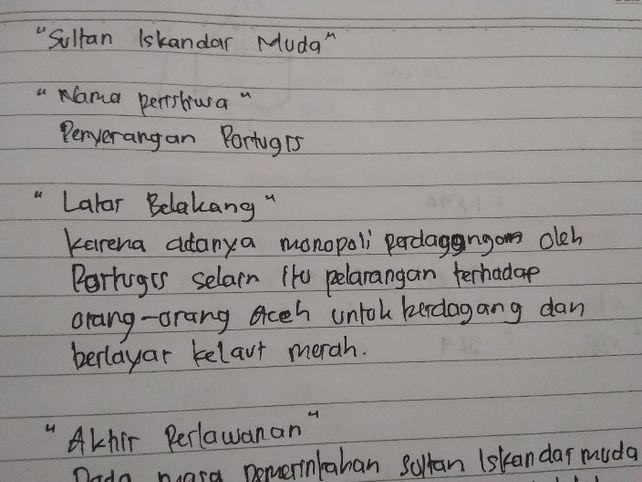 "Sultan Iskandar Muda"
"Nama peristiwa"
Penyerangan Portugis
"Latar Belakang"
karena adanya monopoli perdagangan oleh
Portugis selain itu pelarangan terhadap
orang-orang Aceh untuk berdagang dan
berlayar kelaut merah.
"Akhir Perlawanan"
Pada masa pemerintahan sultan Iskandar muda